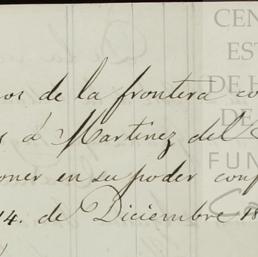 de la frontera
á Martínez del
en su poder
14. de Diciembre 18
CEN
ES
DE
DE
FUN